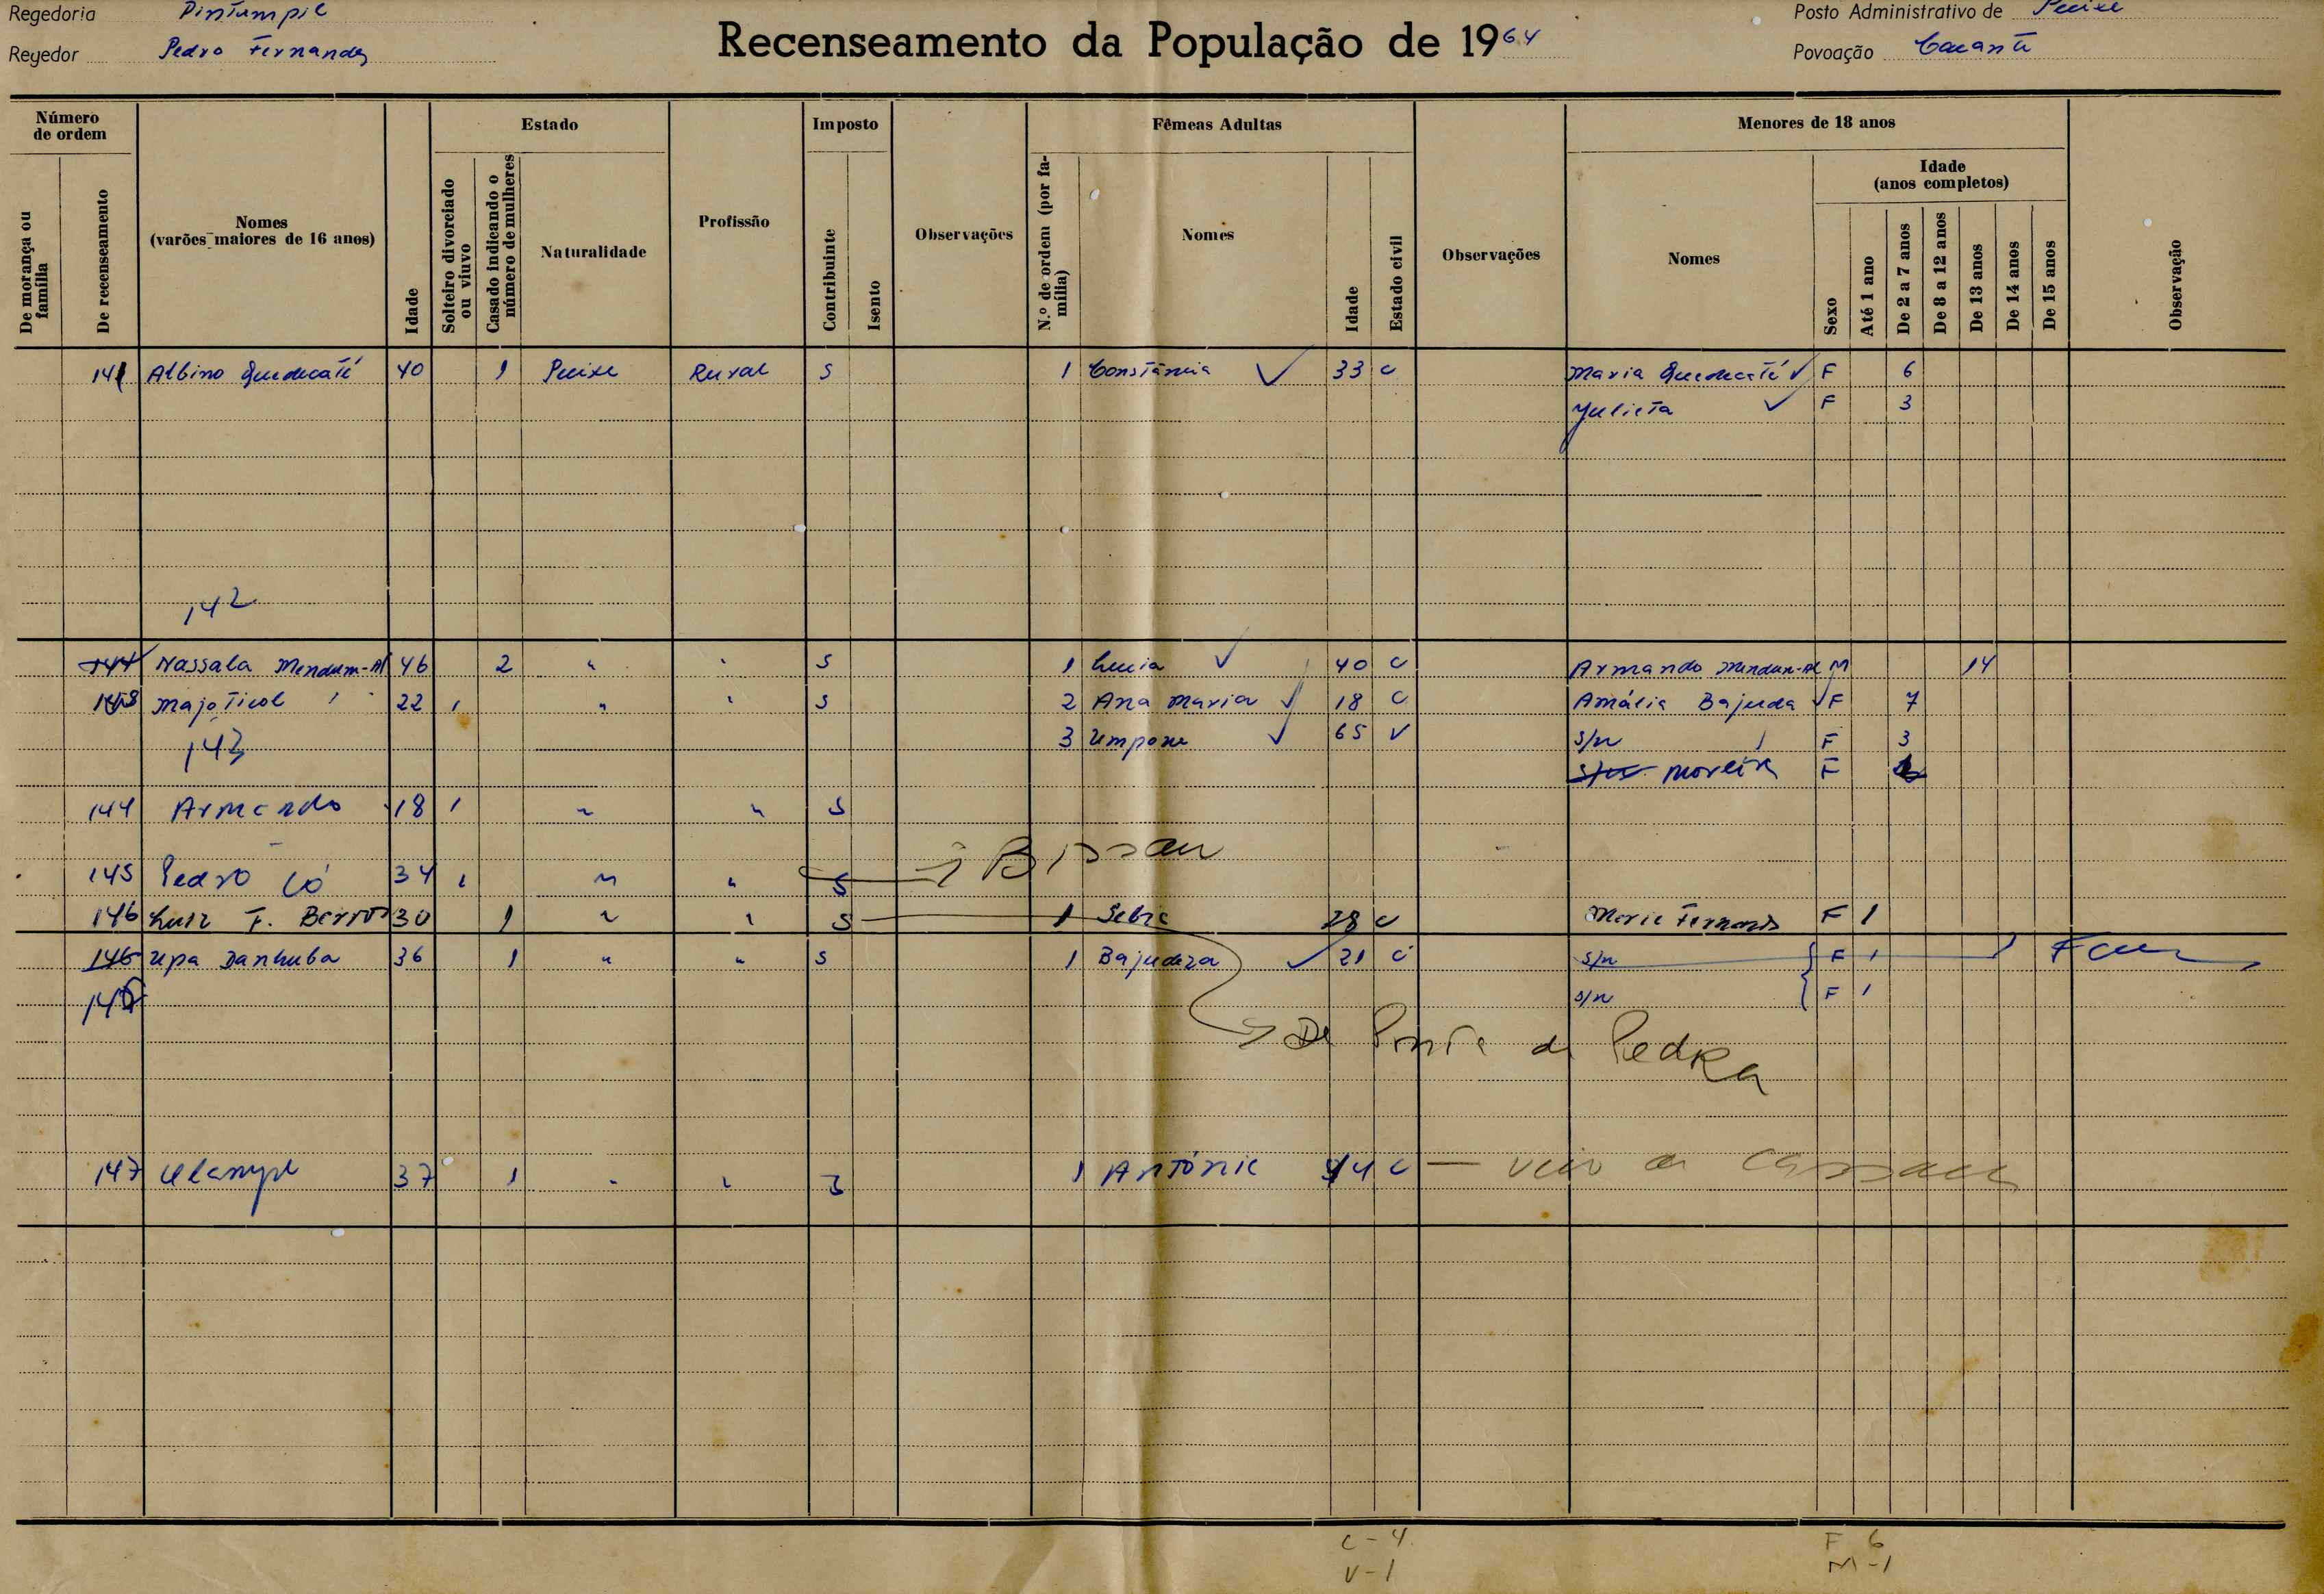 Regedoria Pintampil
Posto Administrativo de Pecixe
Regedor Pedro Fernandes
Recenseamento da População de 1964
Povoação
Número de ordem
Estado
Imposto
Fêmeas Adultas
Menores de 18 anos
De morança ou família
De recenseamento
Nomes (varões maiores de 16 anos)
Idade
Solteiro divorciado ou viuvo
Casado indicando o número de mulheres
Naturalidade
Profissão
Contribuinte
Isento
Observações
N.º de ordem (por família)
Nomes
Idade
Estado civil
Observações
Nomes
Sexo
Idade (anos completos)
Até 1 ano
De 2 a 7 anos
De 8 a 12 anos
De 13 anos
De 14 anos
De 15 anos
Observação
141 Albino 40 1 Pecixe Rural S 1 Constância 33 C Maria F 6
Julieta F 3
142
Nassala 46 2 " " S 1 Lucia 40 C Armando M 14
Majo Ticol 22 1 " " S 2 Ana Maria 18 C Amália Bajuda F 7
143 3 Umpone 65 V s/n F 3
Moreira F
144 Armando 18 1 " " S
Bissau
145 Pedro Có 34 1 " " S
146 Luiz F. Barros 30 1 " " S 1 28 C Maria F 1
146 Upa Danhuba 36 1 " " S 1 Bajudeza 21 C s/n F 1
s/n F 1
De Ponta de Pedra
147 37 1 " " 1 Antónia 44 C — veio de
C - 4
F 6
V - 1
M - 1